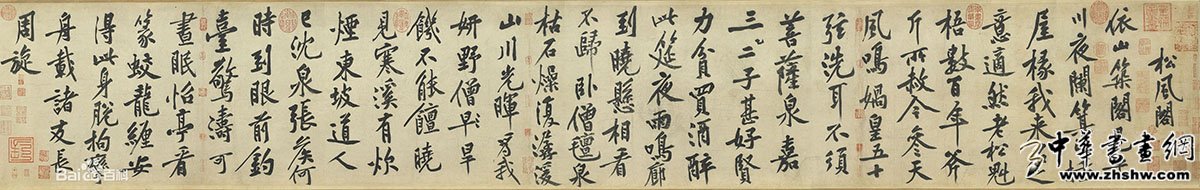 松風閣
依山築閣
川夜闌箕
屋椽我来
意適然老松魁
梧數百年斧
斤所赦令參天
風鳴媧皇五十
弦洗耳不須
菩薩泉嘉
三二子甚好賢
力貧買酒醉
此筵夜雨鳴廊
到曉懸相看
不歸卧僧氊泉
枯石燥復潺湲
山川光暉為我
妍野僧早旱
饑不能饘曉
見寒溪有炊
煙東坡道人
已沈泉張侯何
時到眼前釣
臺驚濤可
晝眠怡亭看
篆蛟龍纏安
得此身脱拘攣
舟載諸友長
周旋
Bai百科
中華書畫網
www.zhshw.com